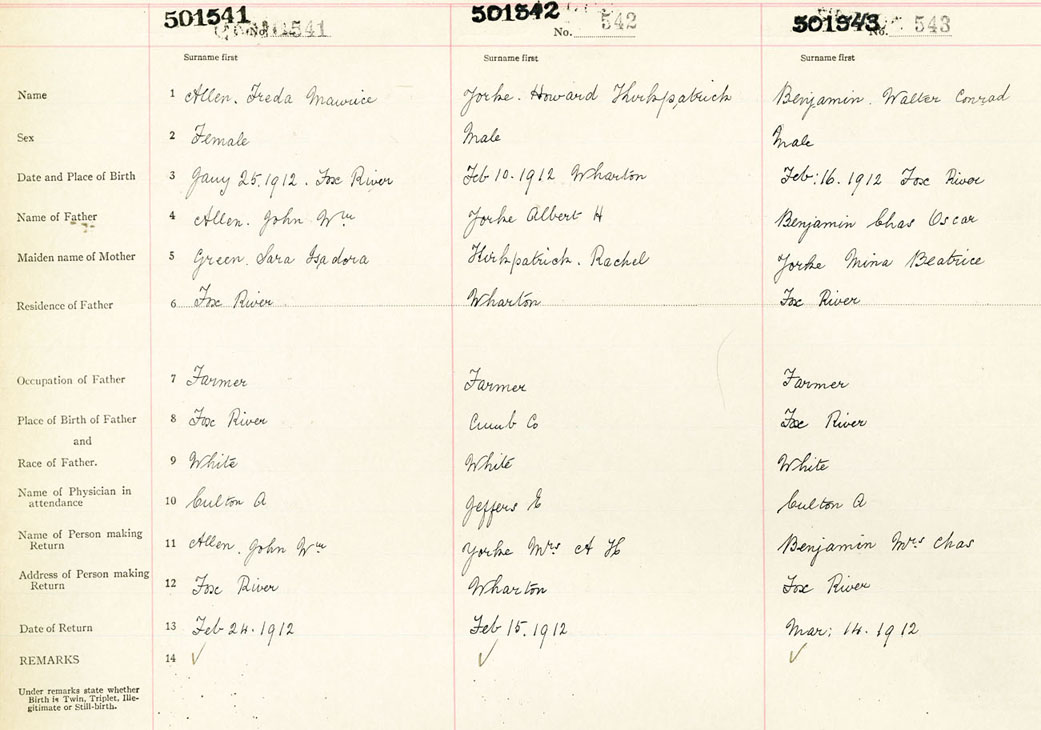 501541 501542 501543
No. 541 No. 542 No. 543
Surname first Surname first Surname first
Name 1 Allen. Freda Mawrice Yorke. Howard Khirkpatrick Benjamin. Walter Conrad
Sex 2 Female Male Male
Date and Place of Birth 3 Jany 25.1912. Fox River Feb 10.1912 Wharton Feb:16.1912 Fox River
Name of Father 4 Allen. John Wm Yorke Albert H Benjamin Chas Oscar
Maiden name of Mother 5 Green. Sara Isadora Kirkpatrick. Rachel Yorke Mina Beatrice
Residence of Father 6 Fox River Wharton Fox River
Occupation of Father 7 Farmer Farmer Farmer
Place of Birth of Father 8 Fox River Cumb Co Fox River
and
Race of Father. 9 White White White
Name of Physician in
attendance 10 Culton A Jeffers E Culton A
Name of Person making
Return 11 Allen. John Wm Yorke Mrs A H Benjamin Mrs Chas
Address of Person making
Return 12 Fox River Wharton Fox River
Date of Return 13 Feb 24.1912 Feb 15.1912 Mar: 14.1912
REMARKS 14 ✓ ✓ ✓
Under remarks state whether
Birth is Twin, Triplet, Ille-
gitimate or Still-birth.